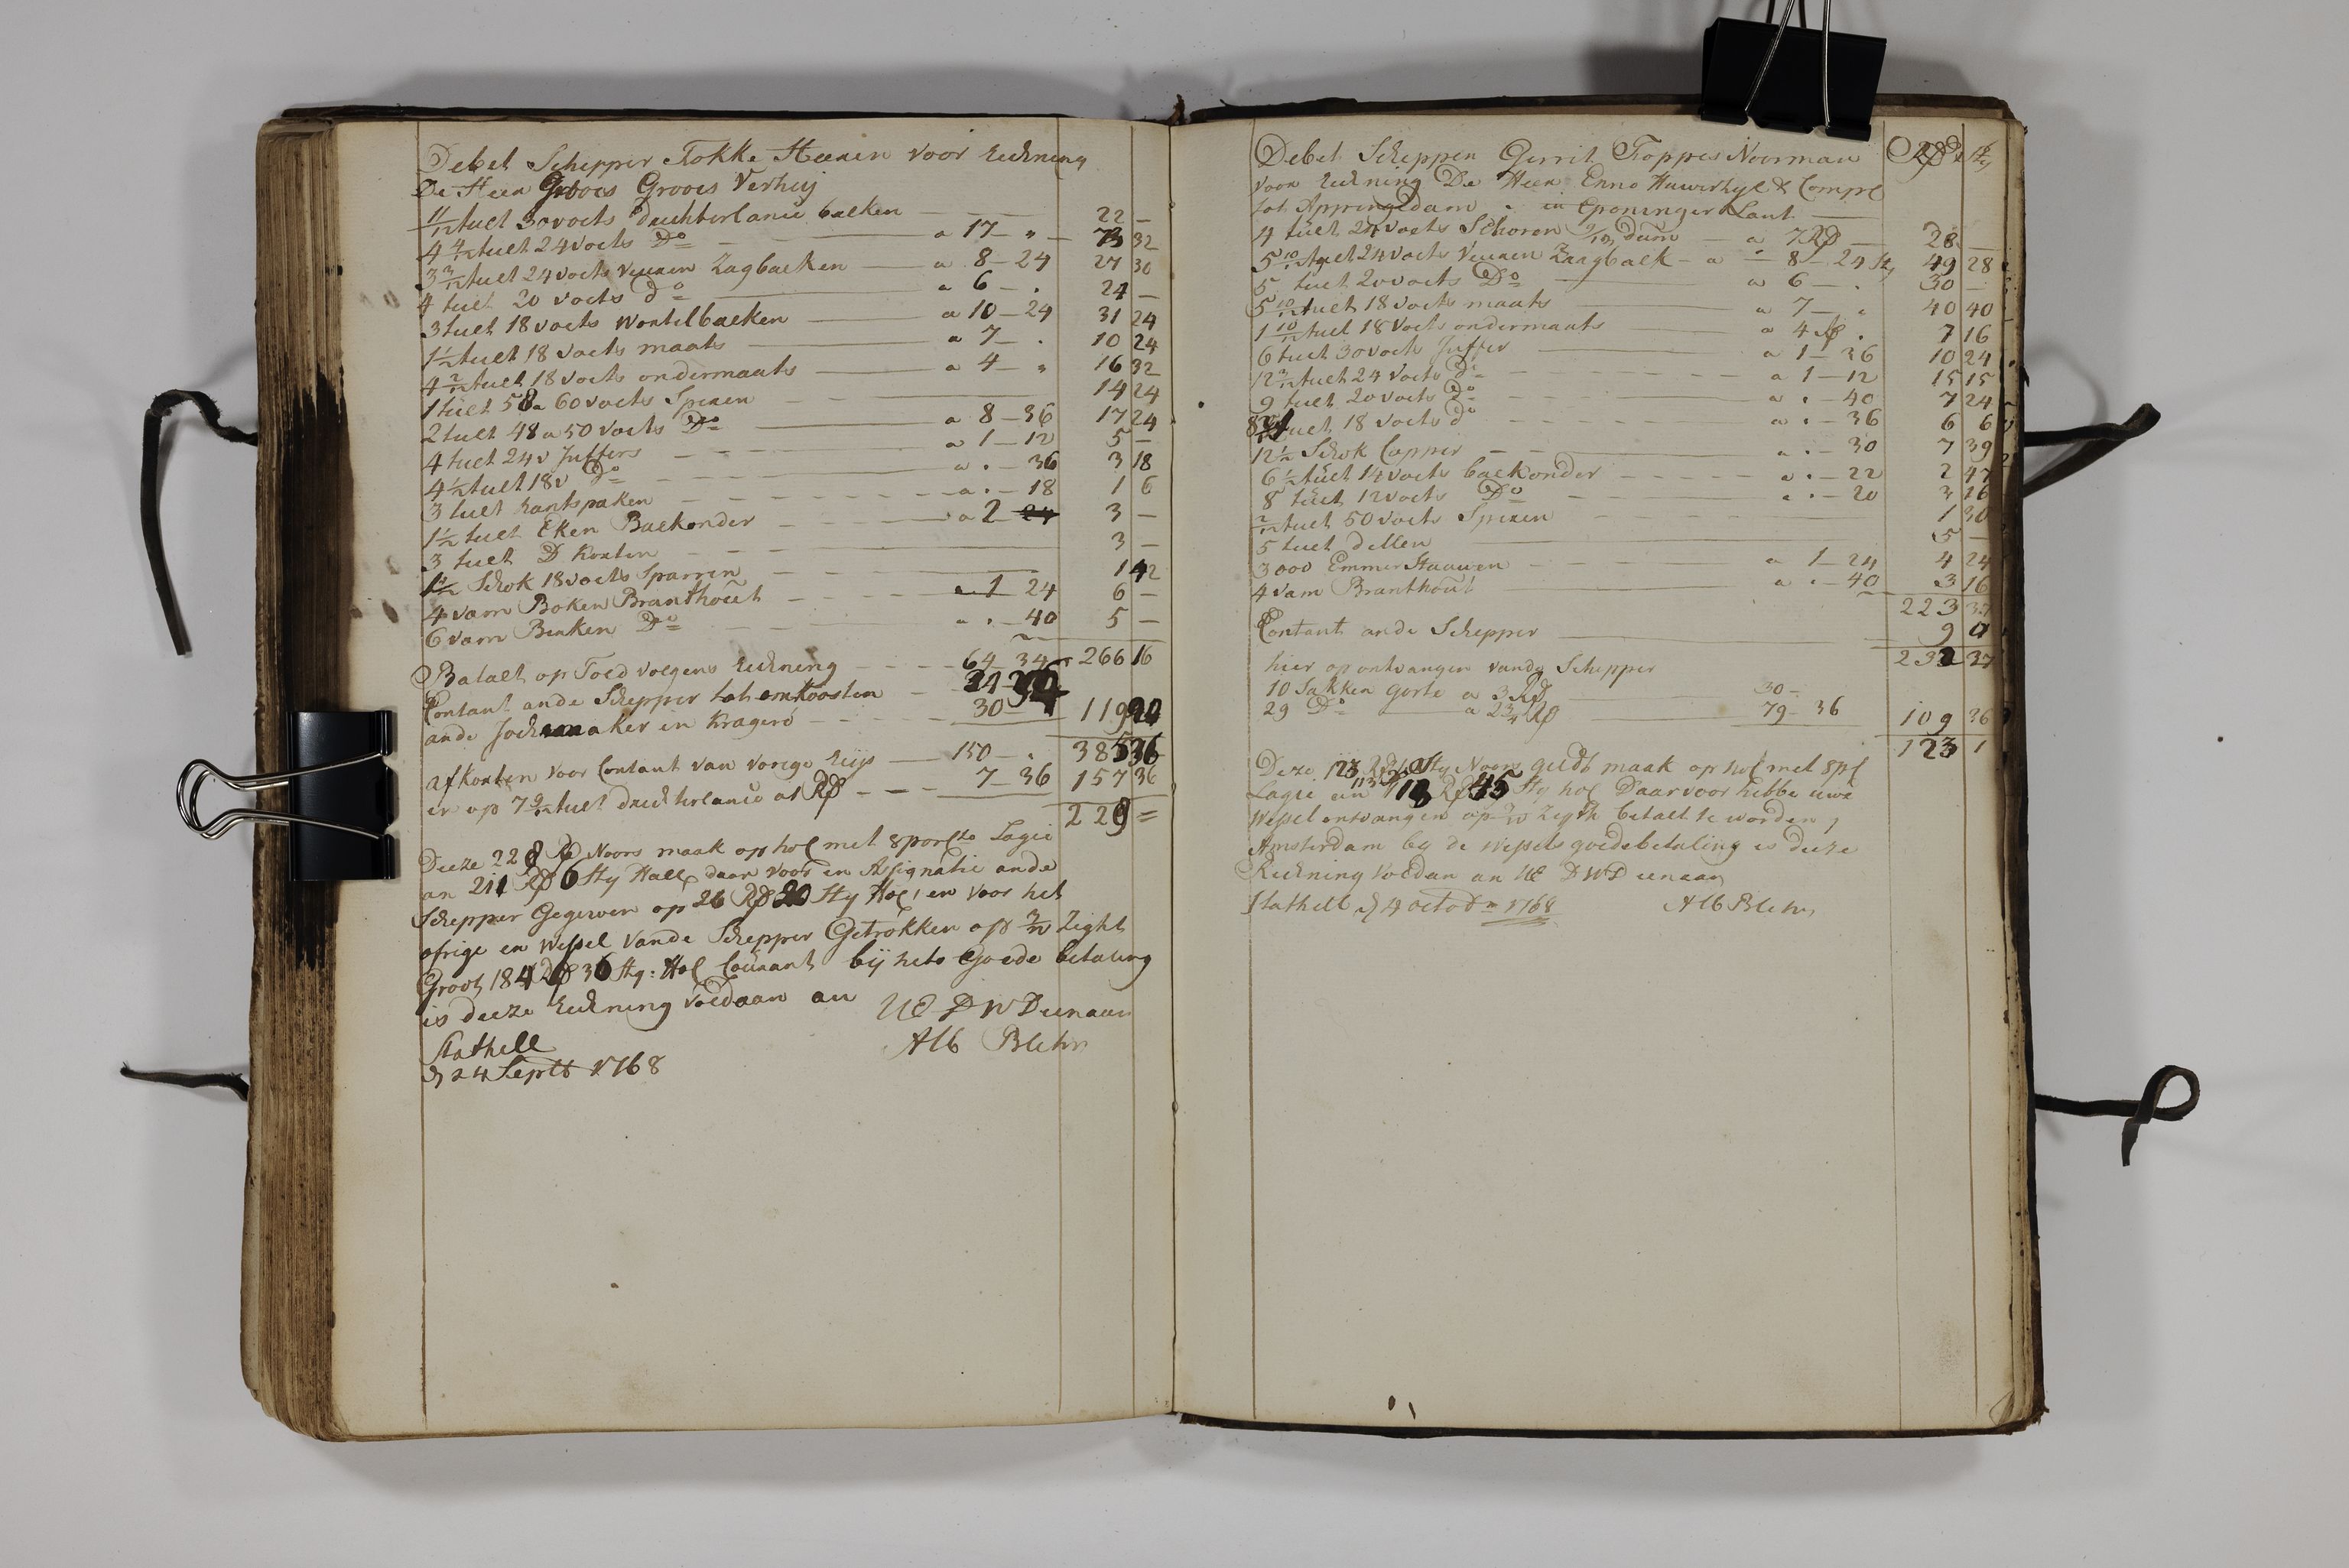 Debet Schipper Tokke Heeren voor Reckning
De Heer Groves Grooes Verhuy
11/12 tult 30 voets duchterlanse balken — 22 —
4 4/12 tult 24 voets Do — a 17 — " — 73 32
3 3/12 tult 24 voets Vuuren Zagbalken — a 8 — 24 27 30
4 tult 20 voets do — a 6 — . 24 —
3 tult 18 voets Wortelbalken — a 10 — 24 31 24
1 1/2 tult 18 voets maats — a 7 — . 10 24
4 2/12 tult 18 voets ondermaats — a 4 — " 16 32
1 tult 58 a 60 voets Spieren — 14 24
2 tult 48 a 50 voets Do — a 8 — 36 17 24
4 tult 24 v Juffers — a 1 — 12 5 —
4 1/2 tult 18 v Do — a . — 36 3 18
3 tult hantspaken — a . — 18 1 6
1 1/2 tult Eken Balkonder — a 2 24 3 —
3 tult D korten — 3 —
1/2 Schok 18 voets Sparren — 1 42
4 vam Boken Branthout — a 1 24 6 —
6 vam Berken Do — a . — 40 5 —
266 16
Betalt op Toed volgens Reckning — 64 — 34
Contant ande Schipper tot onkoosten
ande Jockemaker in Kragerö — 30 — 119 20
385 36
afkorten voor Contant van vorige Reijs — 150 — .
en op 7 9/12 tult duchterlanse at Rd — 7 — 36 157 36
228 =
Dieze 228 Rd Noors maak op hol met 8 porcto Lagie
an 211 Rd 6 Sty Holl daar voor en Assignatie ande
Schepper Gegeven op 26 Rd 20 Sty Hol, en voor het
ofrige en Wessel vande Schepper Getrokken op 2/m Zight
Groot 184 Rd 36 Sty: Hol Courant bij hets Goede betaling
is dieze Reckning voldaan an UE DW Dienaar
Stathell Alb Blehr
d 24 Septb 1768
Debet Scheppen Gerrit Toppes Noorman Rd Sty
voor Reckning De Heer Enno Huwirhyl & Compe
tot Appingedam . in Groninger Lant —
4 tult 24 voets Schoren 9/10 dum — a 7 Rd — 28 —
5 10/12 tult 24 voets Vuuren Zaagbalk — a — 8 — 24 Sty 49 28
5 tult 20 voets Do — a 6 — . 30 —
5 10/12 tult 18 voets maats — a 7 — . 40 40
1 10/12 tult 18 voets ondermaats — a 4 Rd . 7 16
6 tult 30 voets Juffer — a 1 — 36 10 24
12 3/12 tult 24 voets Do — a 1 — 12 15 15
9 tult 20 voets Do — a . — 40 7 24
tult 18 voets do — a . — 36 6 6
12 1/2 Schok Capper — a . — 30 7 39
6 1/2 tult 14 voets balkonder — a . — 22 2 47
8 tult 12 voets Do — a . — 20 3 16
2/12 tult 50 voets Spieren — 1 30
5 tult dellen — 5 —
3000 Emmer Staaven — a 1 — 24 4 24
4 vam Branthout — a . — 40 3 16
223 37
Contant ande Schepper — 9 0
232 37
hier op ontvangen vande Schepper
10 Sakken gorte a 3 Rd — 30 —
29 Do — a 2 3/4 Rd — 79 — 36 109 36
123 1
Deze 123 Rd 1 Sty Noors geldt maak op hol met 8 pc
Lagie an 113 Rd 45 Sty hol Daarvoor hebbe uwe
Wessel ontvangen op 2/m Zigth betalt te worden,
Amsterdam by de Wessels goede betaling is dieze
Reckning voldan an UE DW Dienaar
Stathell d 4 octobr 1768 Alb Blehr